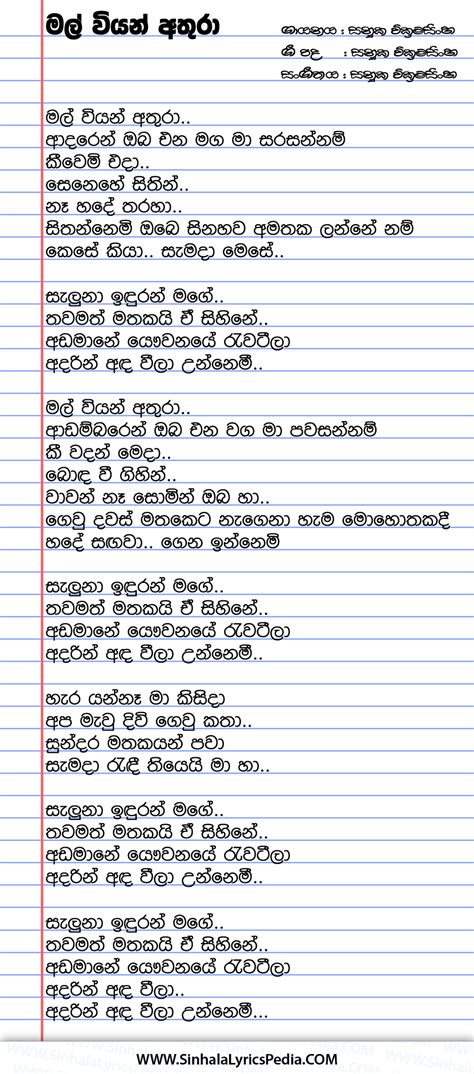 මල් වියන් අතුරා
ගායනය : සනුක වික්‍රමසිංහ
ගී පද : සනුක වික්‍රමසිංහ
සංගීතය : සනුක වික්‍රමසිංහ
මල් වියන් අතුරා..
ආදරෙන් ඔබ එන මග මා සරසන්නම්
කීවෙමි එදා..
සෙනෙහේ සිතින්..
නෑ හදේ තරහා..
සිතන්නෙමි ඔබෙ සිනහව අමතක ලන්නේ නම්
කෙසේ කියා.. සැමදා මෙසේ..
සැලුනා ඉඳුරන් මගේ..
තවමත් මතකයි ඒ සිහිනේ..
අඩමානේ යෞවනයේ රැවටීලා
අදරින් අඳ වීලා උන්නෙමී..
මල් වියන් අතුරා..
ආඩම්බරෙන් ඔබ එන වග මා පවසන්නම්
කී වදන් මෙදා..
බොඳ වී ගිහින්..
වාවන් නෑ සොමින් ඔබ හා..
ගෙවු දවස් මතකෙට නැගෙනා හැම මොහොතකදී
හදේ සඟවා.. ගෙන ඉන්නෙමි
සැලුනා ඉඳුරන් මගේ..
තවමත් මතකයි ඒ සිහිනේ..
අඩමානේ යෞවනයේ රැවටීලා
අදරින් අඳ වීලා උන්නෙමී..
හැර යන්නෑ මා කිසිදා
අප මැවු දිවි ගෙවු කතා..
සුන්දර මතකයන් පවා
සැමදා රැඳී තියෙයි මා හා..
සැලුනා ඉඳුරන් මගේ..
තවමත් මතකයි ඒ සිහිනේ..
අඩමානේ යෞවනයේ රැවටීලා
අදරින් අඳ වීලා උන්නෙමී..
සැලුනා ඉඳුරන් මගේ..
තවමත් මතකයි ඒ සිහිනේ..
අඩමානේ යෞවනයේ රැවටීලා
අදරින් අඳ වීලා..
අදරින් අඳ වීලා උන්නෙමී...
WWW.SinhalaLyricsPedia.COM